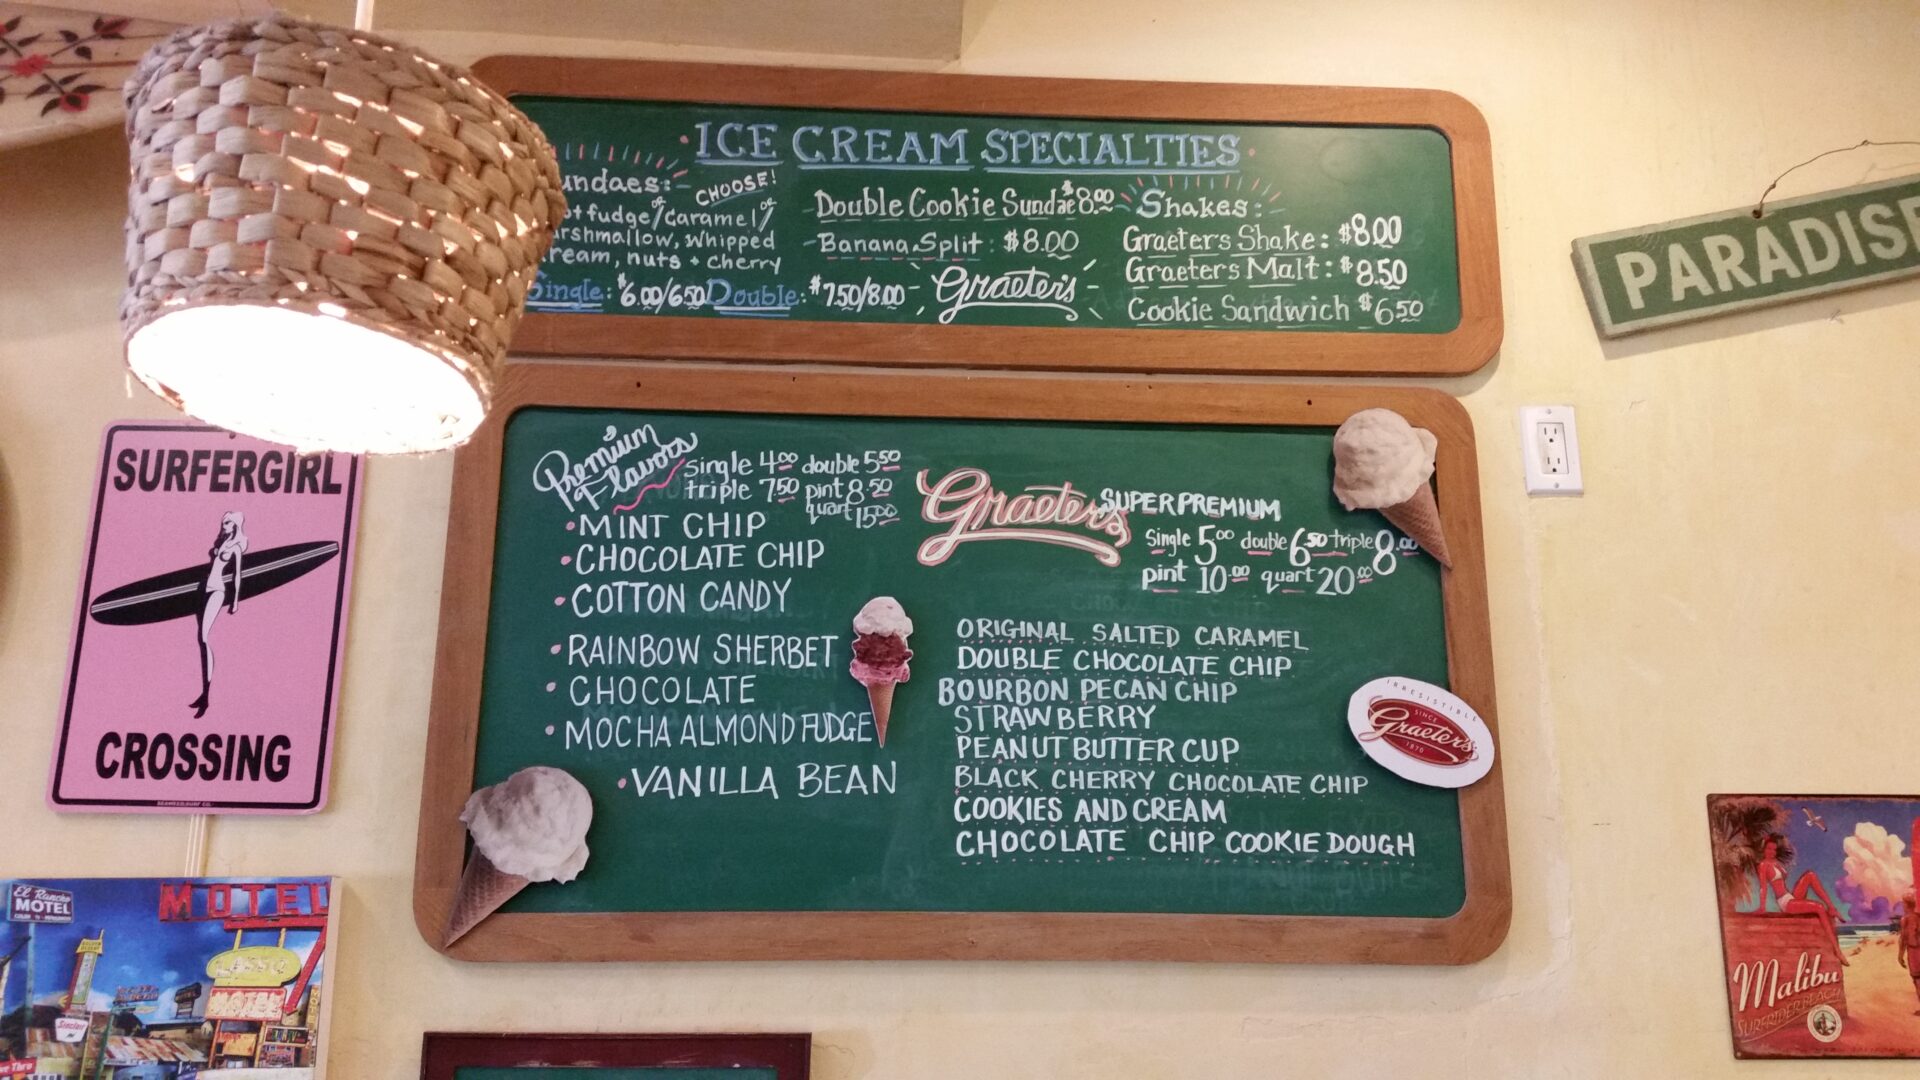 ICE CREAM SPECIALTIES
undaes: CHOOSE!
ot fudge/or Caramel/or
arshmallow, whipped
ream, nuts + cherry
Single: $6.00/6.50 Double: $7.50/8.00
Double Cookie Sundae $8.00
Banana Split: $8.00
Graeter's
Shakes:
Graeters Shake: $8.00
Graeters Malt: $8.50
Cookie Sandwich $6.50
PARADISE
Premium Flavors
single 4.00 double 5.50
triple 7.50 pint 8.50
quart 15.00
• MINT CHIP
• CHOCOLATE CHIP
• COTTON CANDY
• RAINBOW SHERBET
• CHOCOLATE
• MOCHA ALMOND FUDGE
• VANILLA BEAN
Graeter's SUPER PREMIUM
Single 5.00 double 6.50 triple 8.00
pint 10.00 quart 20.00
ORIGINAL SALTED CARAMEL
DOUBLE CHOCOLATE CHIP
BOURBON PECAN CHIP
STRAWBERRY
PEANUT BUTTER CUP
BLACK CHERRY CHOCOLATE CHIP
COOKIES AND CREAM
CHOCOLATE CHIP COOKIE DOUGH
IRRESISTIBLE
SINCE
Graeter's
1870
SURFERGIRL
CROSSING
El Rancho
MOTEL
MOTEL
MOTEL
Sinclair
Malibu
SURFRIDER BEACH